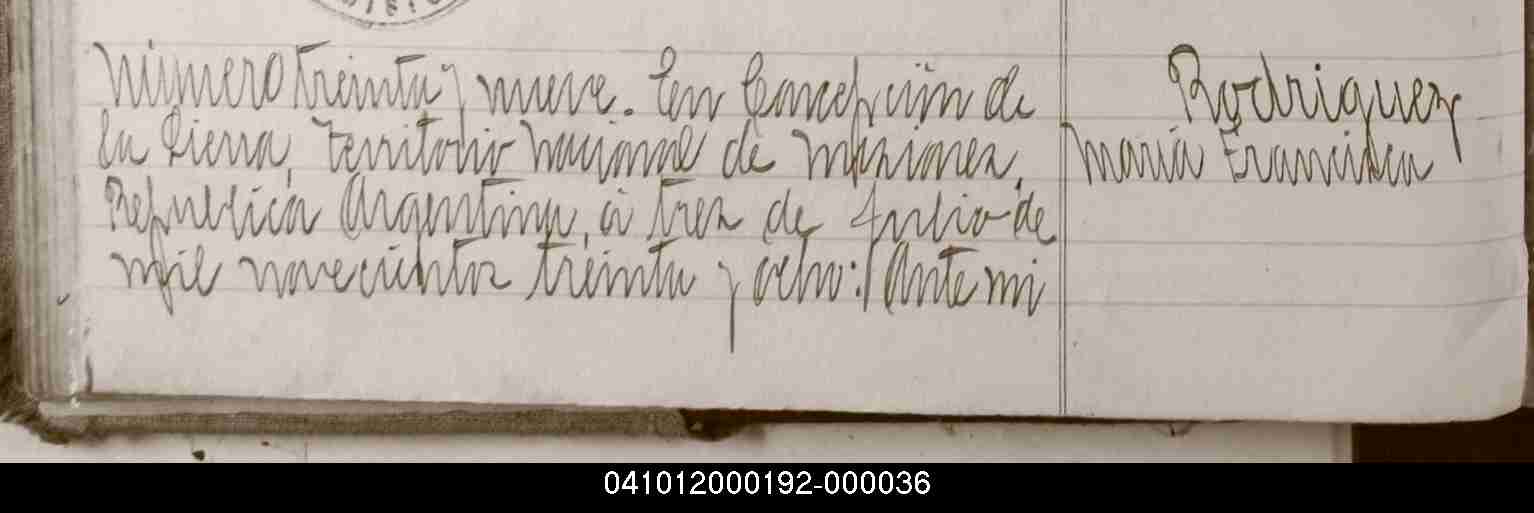 Número treinta y nueve. En Concepción de
la Sierra, Territorio Nacional de Misiones,
República Argentina, á tres de Julio de
mil novecientos treinta y ocho: Ante mi
Rodriguez
Maria Francisca
041012000192-000036